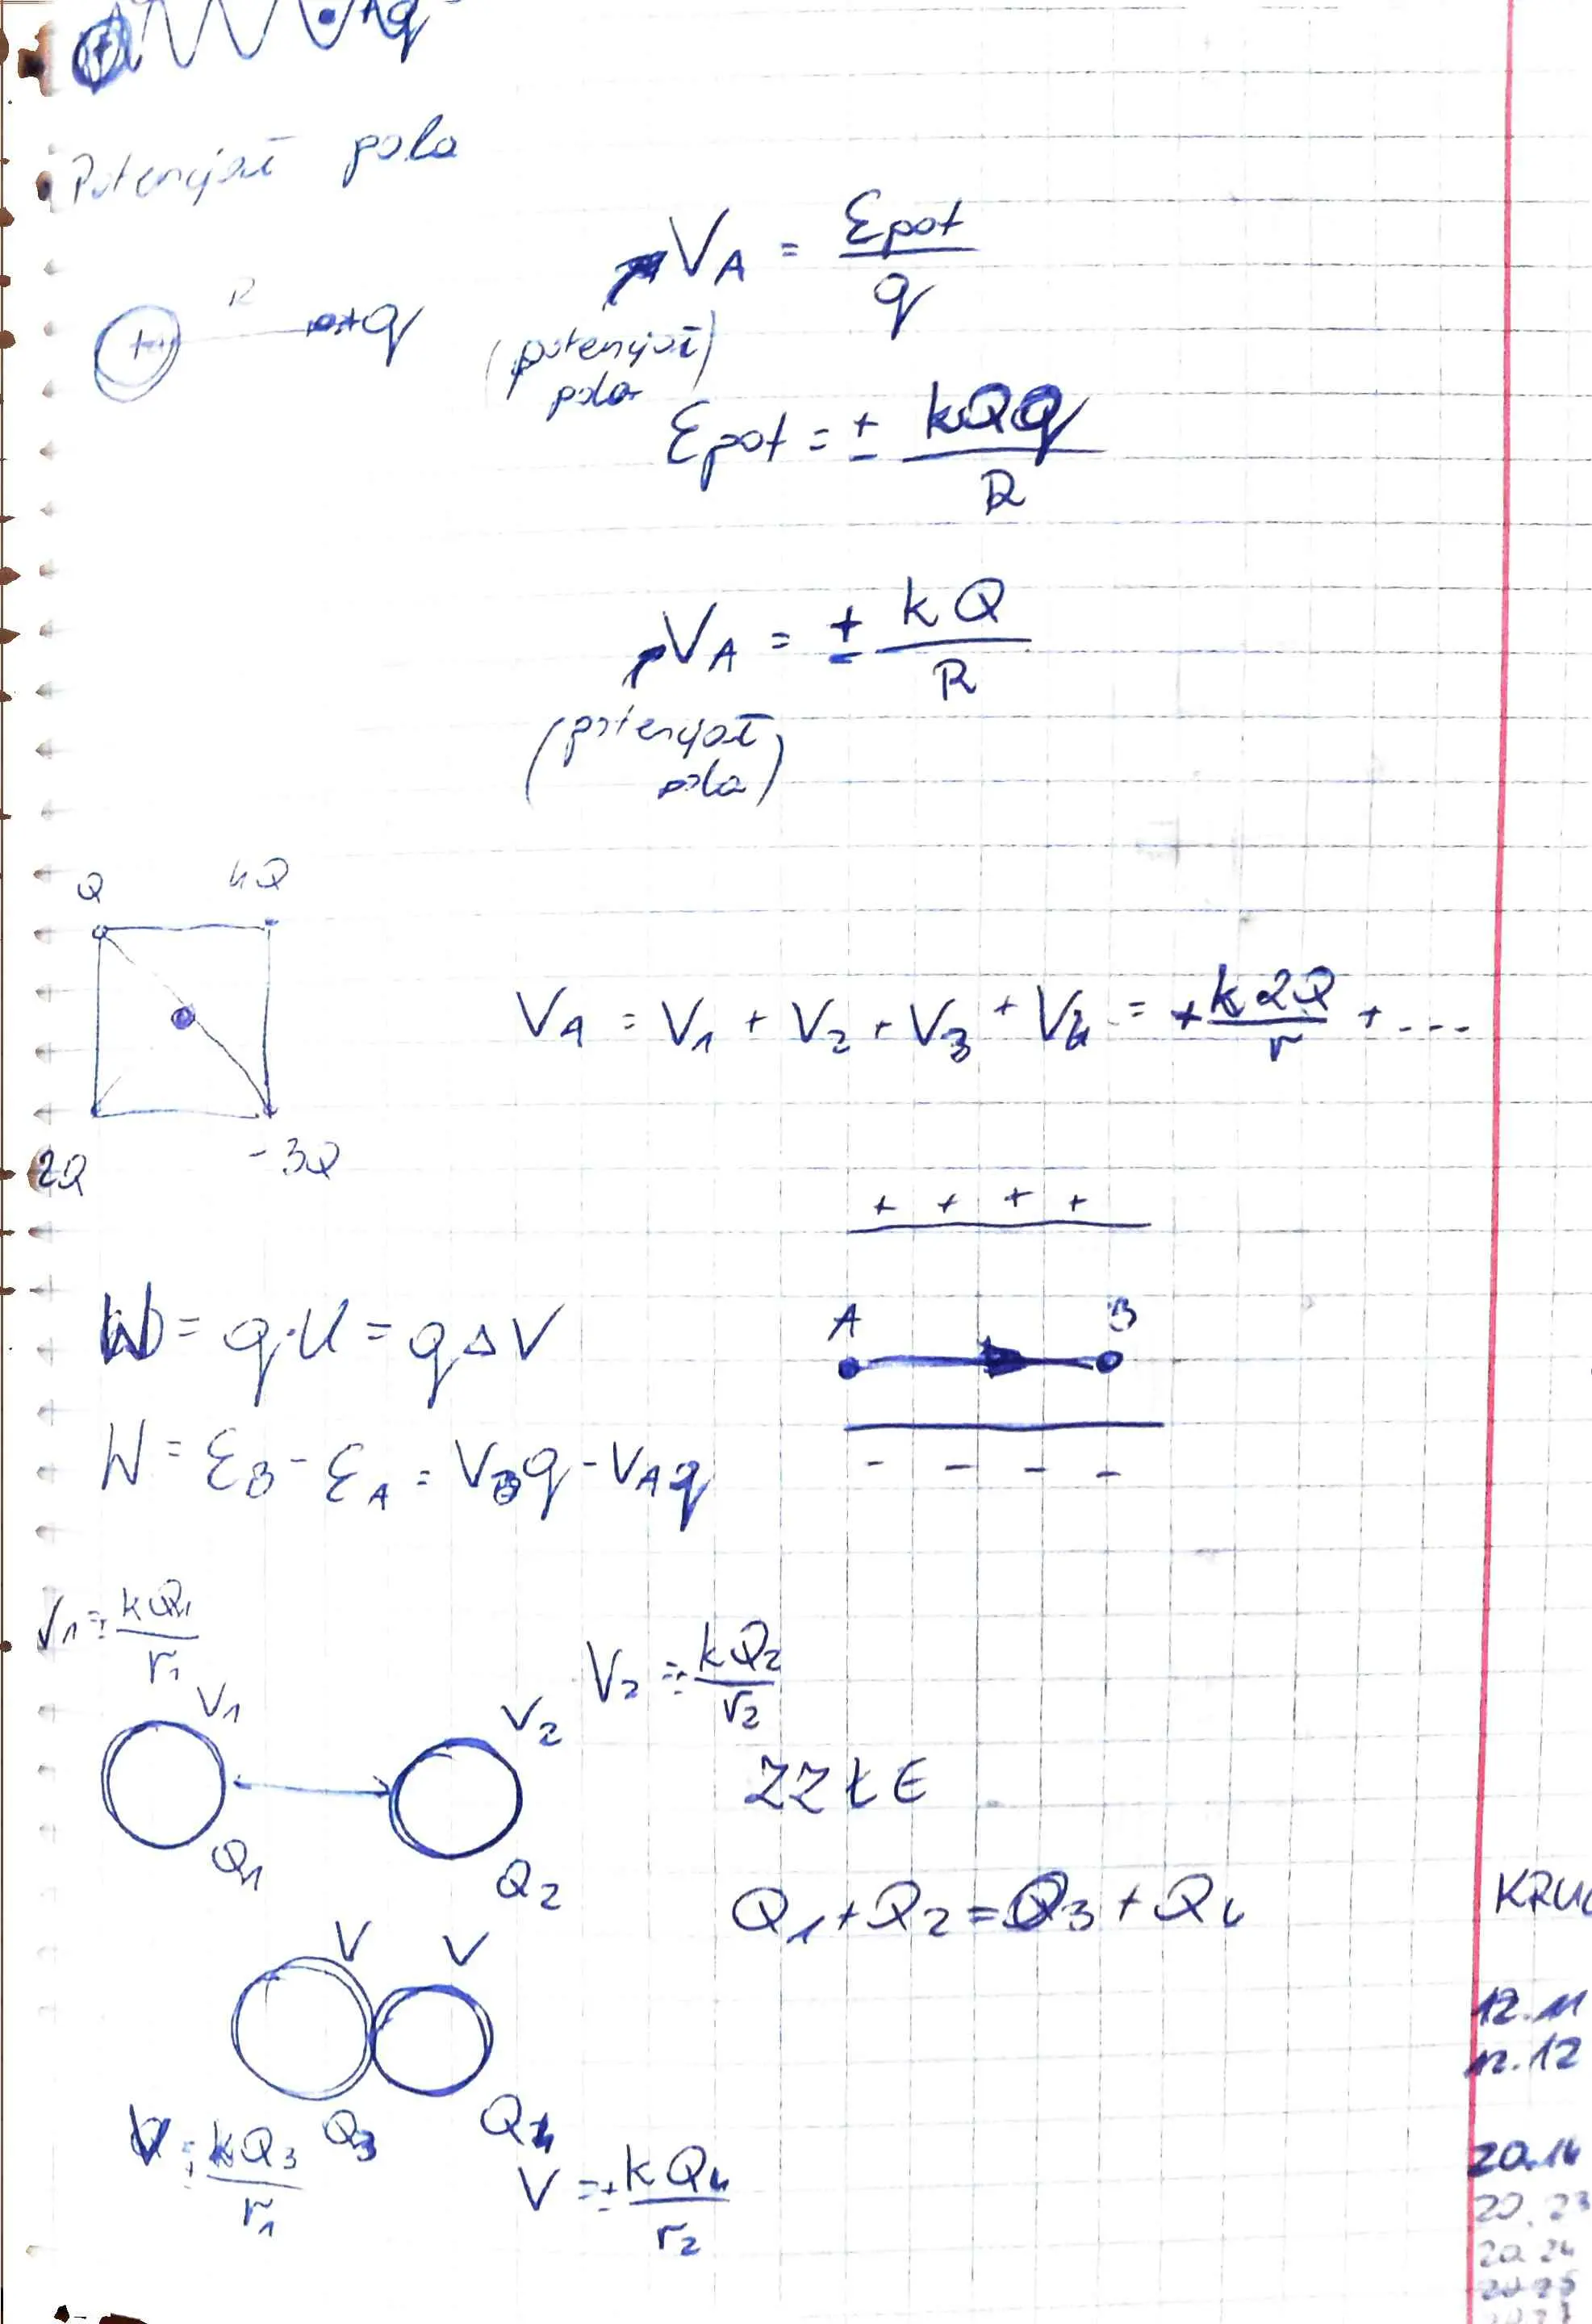 +q
Potencjał pola
R
+ +q
V_A = Epot / q
(potencjał pola)
Epot = ± kQq / R
V_A = ± kQ / R
(potencjał pola)
Q 4Q
2Q -3Q
V_A = V_1 + V_2 + V_3 + V_4 = + k2Q / r + ...
+ + + +
A B
- - - -
W = q·U = qΔV
W = E_B - E_A = V_B q - V_A q
V_1 = ± kQ_1 / r_1
V_2 = ± kQ_2 / r_2
V_1 V_2
Q_1 Q_2
ZZŁE
Q_1 + Q_2 = Q_3 + Q_4
V V
Q_3 Q_4
V = ± kQ_3 / r_1
V = ± kQ_4 / r_2
12.11
12.12
20.14
20.23
20.24
20.25